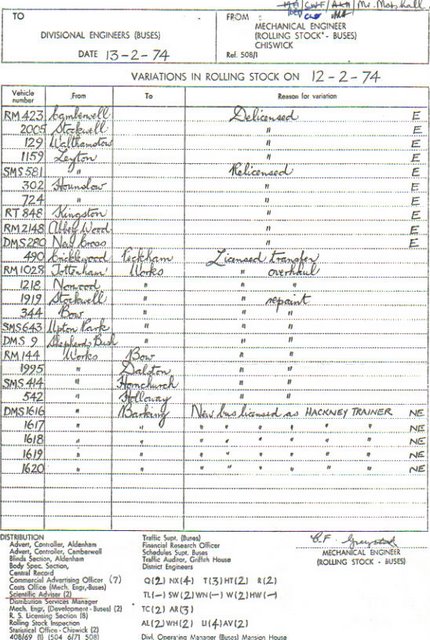 Mr. Marshall
TO
DIVISIONAL ENGINEERS (BUSES)
DATE 13-2-74
FROM :
MECHANICAL ENGINEER
(ROLLING STOCK - BUSES)
CHISWICK
Ref. 508/1
VARIATIONS IN ROLLING STOCK ON 12-2-74
Vehicle number From To Reason for variation
RM 423 Camberwell Delicensed E
2005 Stockwell " E
129 Walthamstow " E
1159 Leyton " E
SMS 581 " Relicensed E
302 Hounslow " E
724 " " E
RT 848 Kingston " E
RM 2148 Abbey Wood " E
DMS 280 New Cross " E
490 Cricklewood Peckham Licensed transfer
RM 1028 Tottenham Works " overhaul
1218 Norwood " " "
1919 Stockwell " " repaint
344 Bow " " "
SMS 643 Upton Park " " "
DMS 9 Shepherds Bush " " "
RM 144 Works Bow
1995 " Dalston
SMS 414 " Hornchurch
542 " Holloway
DMS 1616 " Barking New bus licensed as HACKNEY TRAINER NE
1617 " " " " " " " " NE
1618 " " " " " " " " NE
1619 " " " " " " " " NE
1620 " " " " " " " " NE
DISTRIBUTION
Advert. Controller, Aldenham
Advert. Controller, Camberwell
Blinds Section, Aldenham
Body Spec. Section,
Central Record
Commercial Advertising Officer (7)
Costs Office (Mech. Engr.-Buses)
Scientific Adviser (2)
Distribution Services Manager
Mech. Engr. (Development - Buses) (2)
R. S. Licensing Section (8)
Rolling Stock Inspection
Statistical Office - Chiswick (2)
408/69 (1) (504 6/71 508)
Traffic Supt. (Buses)
Financial Research Officer
Schedules Supt. Buses
Traffic Auditor, Griffith House
District Engineers
Q(2) NX(4) T(3) HT(2) R(2)
TL(-) SW(2) WN(-) W(2) HW(-)
TC(2) AR(3)
AL(2) WH(2) U(4) AV(2)
Divl. Operating Manager (Buses) Mansion House
MECHANICAL ENGINEER
(ROLLING STOCK - BUSES)